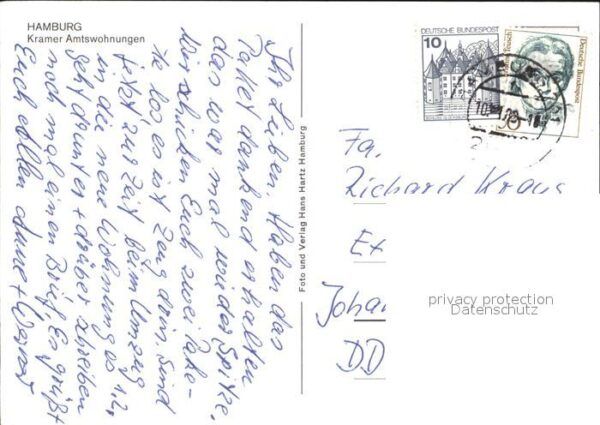 HAMBURG
Kramer Amtswohnungen
Ihr Lieben. Haben das
Paket dankend erhalten
das war mal wieder Spitze.
Wir schicken Euch zwei Pake-
te los es ist Zeug drin. Sind
jetzt zur Zeit beim Umzug
in die neue Wohnung es
geht drunter + drüber schreiben
noch mal einen Brief. Es grüßt
Euch allen + Werner
Foto und Verlag Hans Hartz Hamburg
DEUTSCHE BUNDESPOST
10
Deutsche Bundespost
Fa.
Richard Kraus
Ex
Johan
DD
privacy protection
Datenschutz